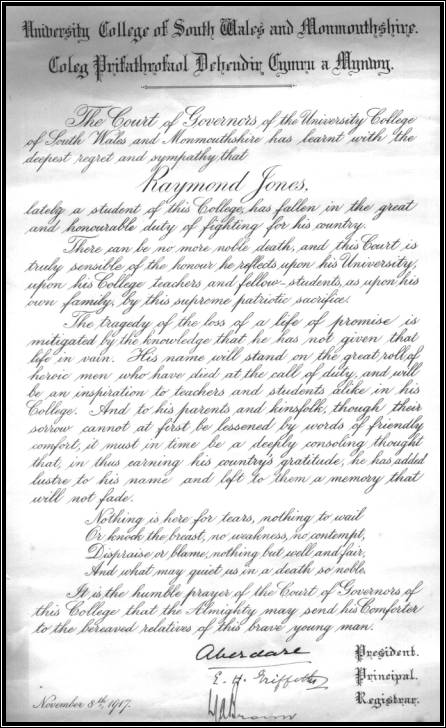 University College of South Wales and Monmouthshire.
Coleg Prifathrofaol Deheudir Cymru a Mynwy.
The Court of Governors of the University College
of South Wales and Monmouthshire has learnt with the
deepest regret and sympathy that
Raymond Jones,
lately a student of this College, has fallen in the great
and honourable duty of fighting for his country.
There can be no more noble death, and this Court is
truly sensible of the honour he reflects upon his University,
upon his College teachers and fellow-students, as upon his
own family, by this supreme patriotic sacrifice.
The tragedy of the loss of a life of promise is
mitigated by the knowledge that he has not given that
life in vain. His name will stand on the great roll of
heroic men who have died at the call of duty, and will
be an inspiration to teachers and students alike in his
College. And to his parents and kinsfolk, though their
sorrow cannot at first be lessened by words of friendly
comfort, it must in time be a deeply consoling thought
that, in thus earning his country's gratitude, he has added
lustre to his name and left to them a memory that
will not fade.
Nothing is here for tears, nothing to wail
Or knock the breast, no weakness, no contempt,
Dispraise or blame, nothing but well and fair,
And what may quiet us in a death so noble.
It is the humble prayer of the Court of Governors of
this College that the Almighty may send his Comforter
to the bereaved relatives of this brave young man.
Aberdare President.
E. H. Griffiths Principal.
Brown Registrar.
November 8th, 1917.